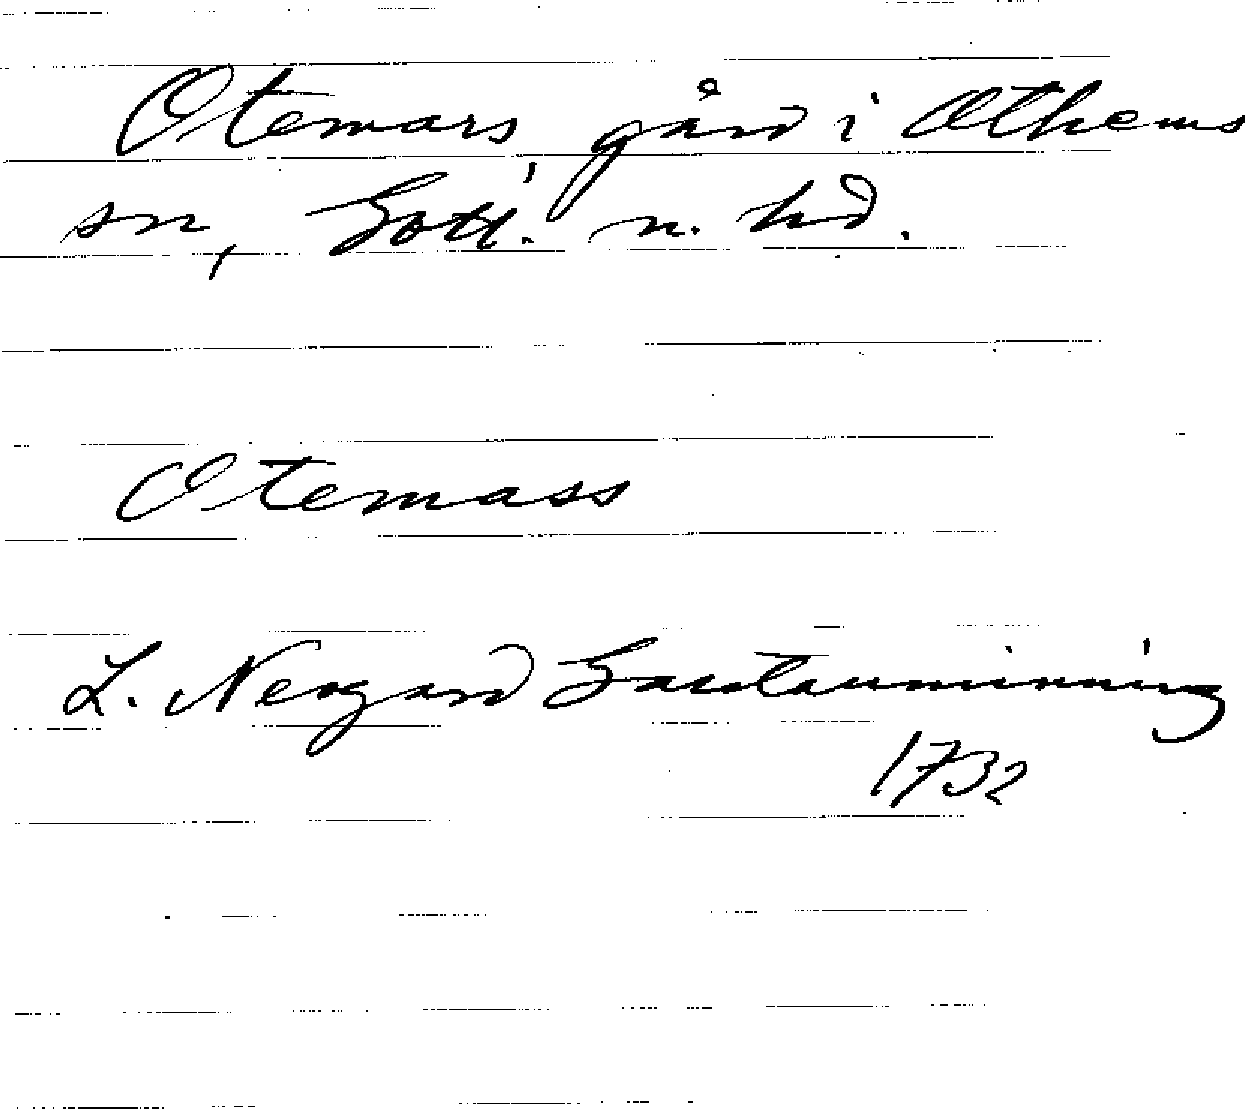 Otemars, gård i Othems
sn, Gotl. n. hd.
Otemass
L. Neogard Gautauminning
1732